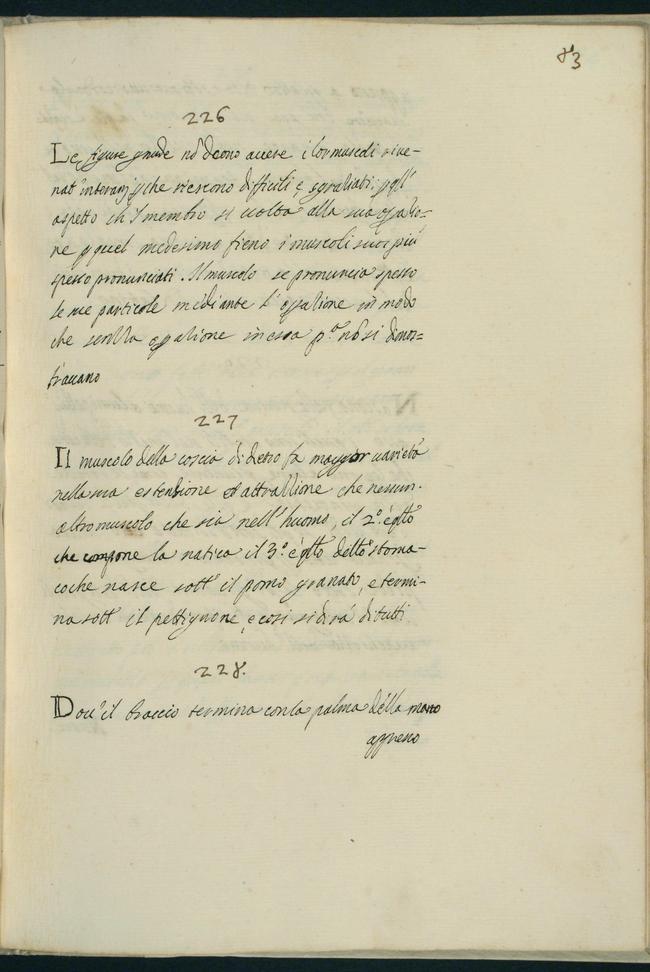 83
226
Le figure gnude nō deono avere i lor muscoli rice-
aspetto ch'l membro si uolta alla sua opalio-
ne p quel medesimo fieno i muscoli suoi più
spesso pronunciati. Il muscolo se pronuncia spesso
le sue particole mediante l' opalione in modo
che senza opalione in essa pª nō si dimos-
travano
227
Il muscolo della coscia di dietro fa maggior uarietà
nella sua estensione et attrattione che nessun-
altro muscolo che sia nell'huomo, il 2º è qllo
che compone la natica il 3º è qllo dello stoma-
co che nasce sott' il pomo granato, e termi-
na sott' il pettignone, e cosi si dirà di tutti.
228.
Dou'il braccio termina con la palma della mano
appresso